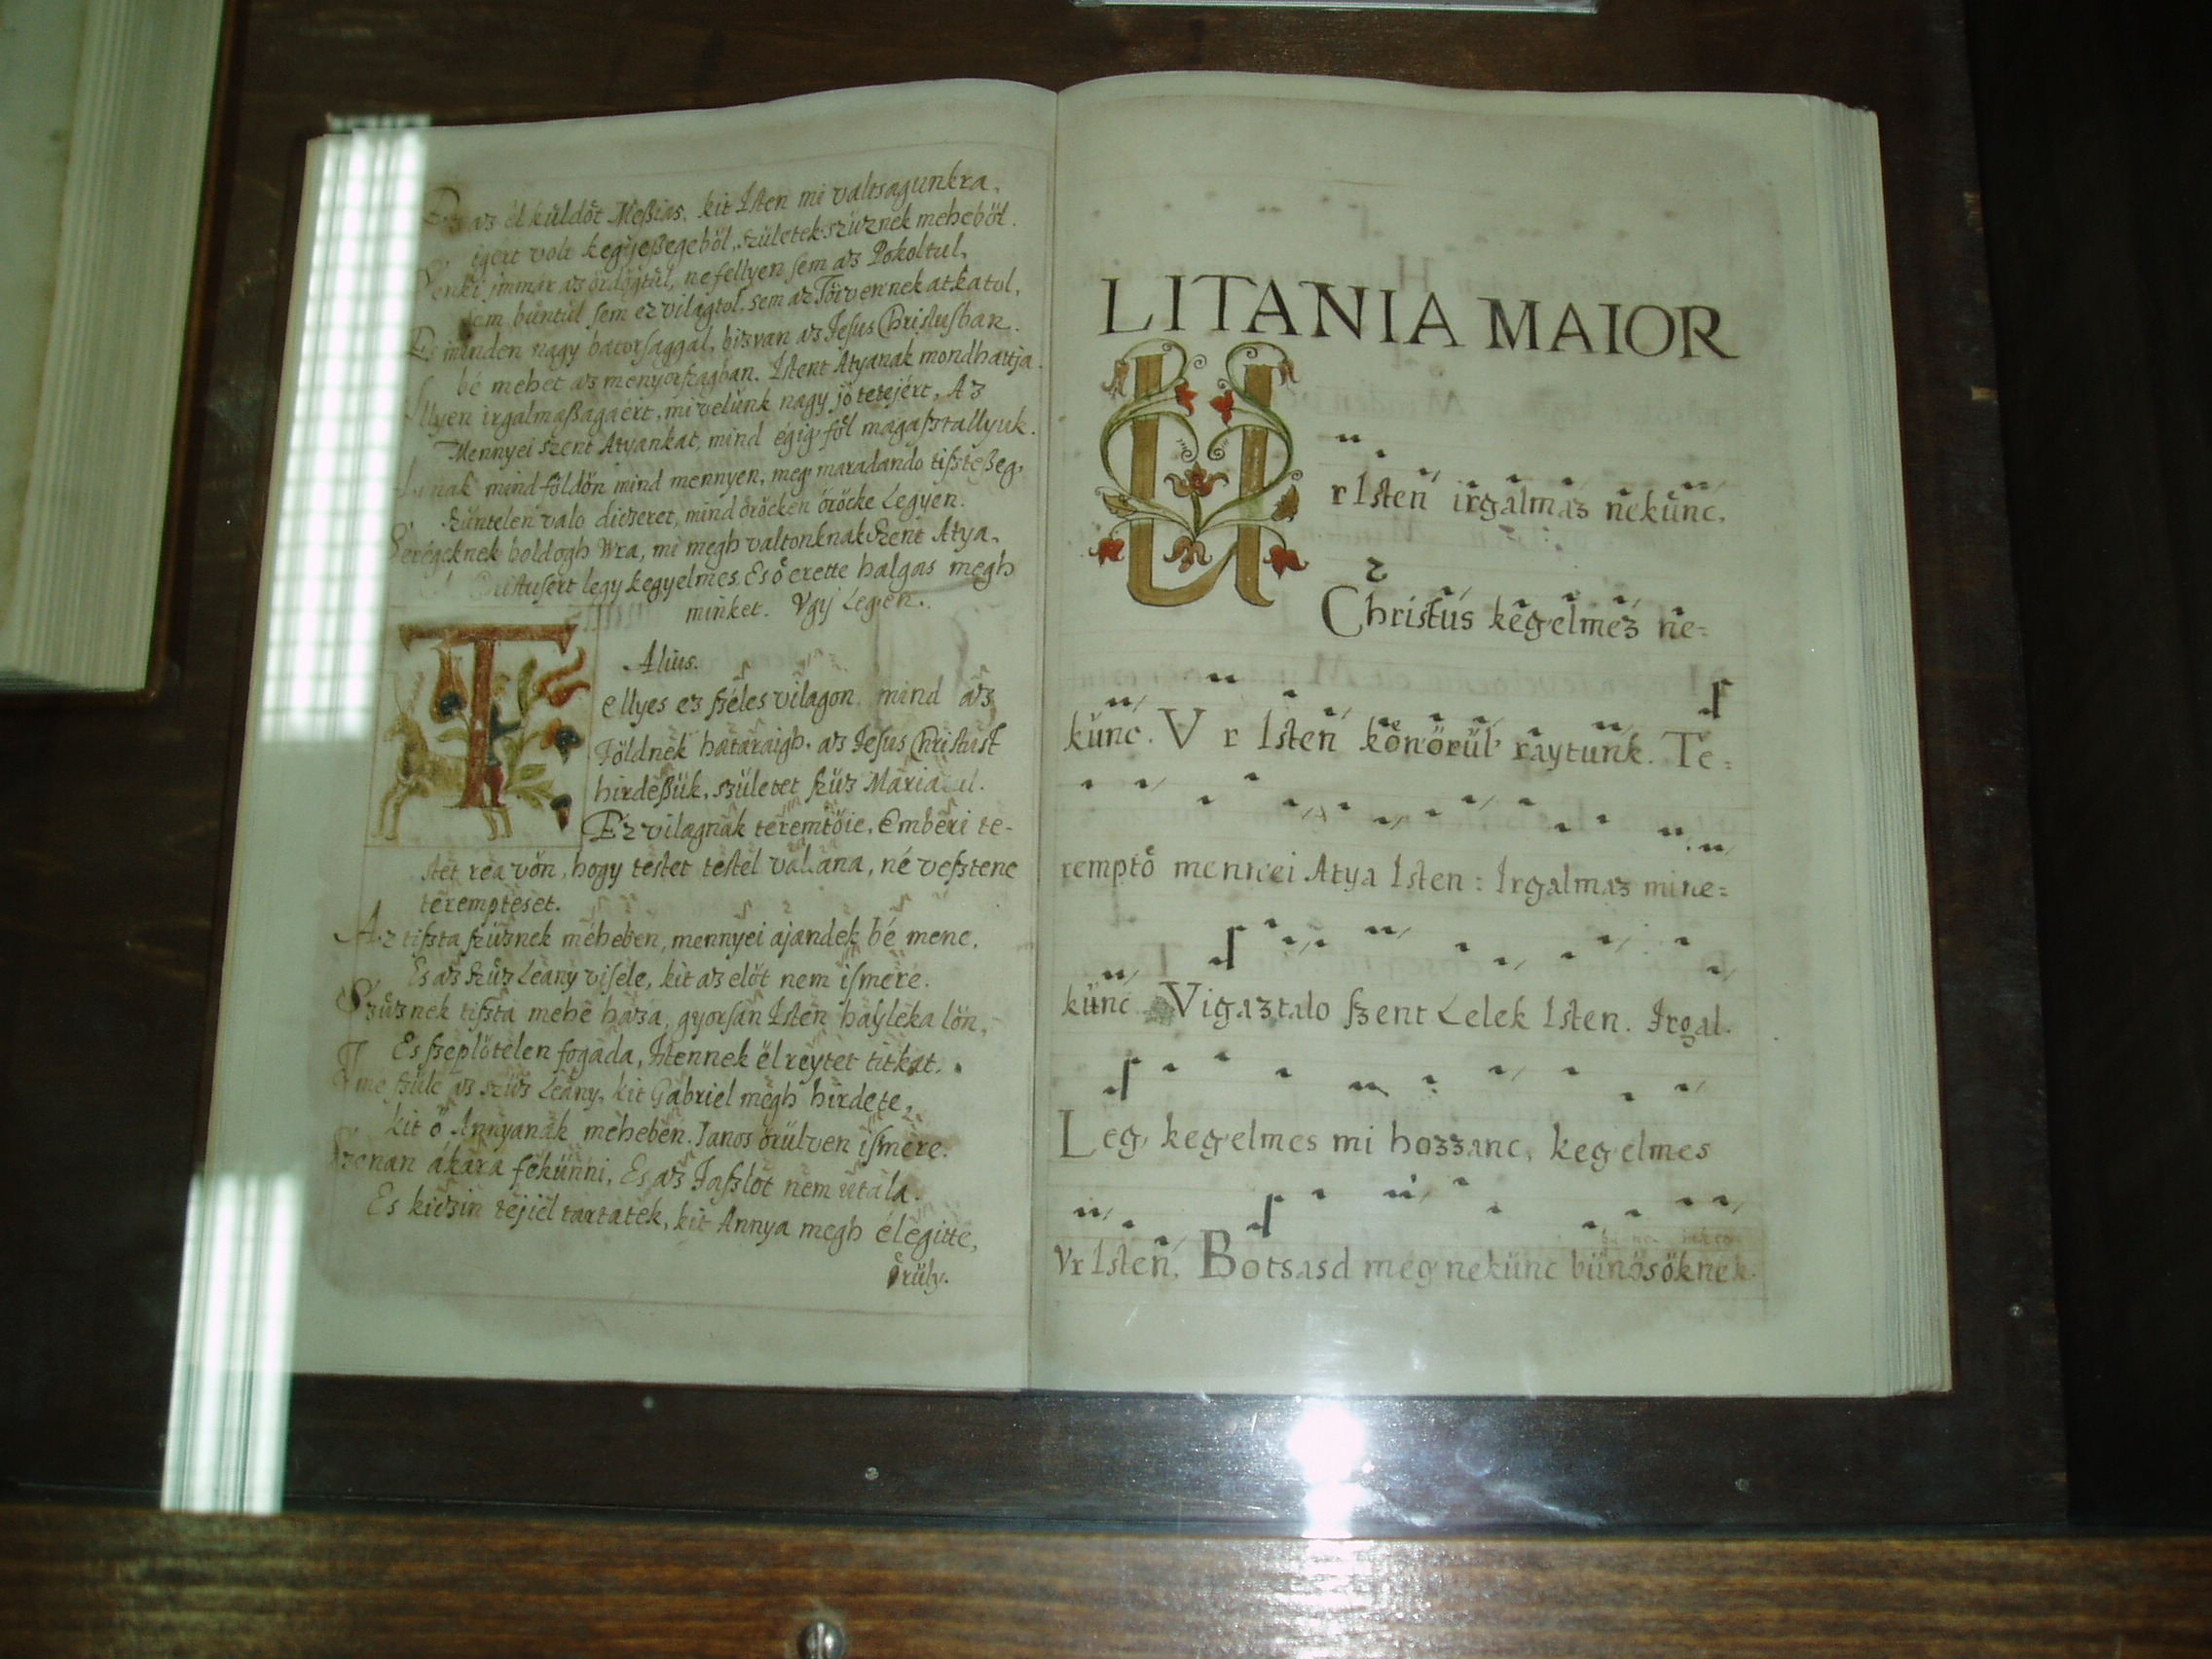 Ez az él küldöt Meßias, kit Isten mi valtsagunkra,
igért volt kegyjeßegeböl, születek szüznek meheböl.
Senki immár az ördögtül, ne fellyen sem az Pokoltul,
sem büntül sem ez vilagtol, sem az Törvennek atkatol,
Es minden nagy batorsaggal, bizvan az Jesus Christusban.
bé mehet az menyorszagban. Istent Atyanak mondhattja.
Illyen irgalmaßagaért, mi velünk nagy jó tetejért, Az
Mennyei szent Atyankat, mind égig föl magasztallyuk.
nak mind földön mind mennyen, meg maradando tiszteßeg,
szüntelen valo diczeret, mind öröcken öröcke Legyen.
Seregeknek boldogh Wra, mi megh valtonknak Szent Atya,
Christusert legy kegyelmes, Es ö erette halgas megh
minket. Vgy Legien.
Alius.
Tellyes ez széles vilagon mind az
Földnek hataraigh, az Jesus Christust
hirdeßük, született szüz Mariatul.
Ez vilagnak teremtöie, emberi te-
stet rea vön, hogy testet testel valtana, né vesztene
teremptéset.
Az tiszta szüznek meheben, mennyei ajandek bé mene,
Es az szüz Leany visele, kit az elöt nem ismere.
Szüznek tiszta mehe haza, gyorsan Isten hayleka lön,
Es szeplötelen fogada, Istennek el reytet titkat.
Ime szüle az szüz Leany, kit Gabriel megh hirdete,
kit ö Annyanak meheben, Ianos örülven ismere.
Szenan akara fekünni, Es az Jaszlot nem utala.
Es kiczin tejiel tartatek, kit Annya megh élegitte,
örüly.
LITANIA MAIOR
Ur Isten irgalmaz nekünc,
Christus kegelmez ne-
künc. Vr Isten könörül raytunk. Te-
remptö mennei Atya Isten: Irgalmaz mine-
künc Vigaztalo szent Lelek Isten. Irgal.
Leg kegelmes mi hozzanc, kegelmes
Vr Isten, Botsasd meg nekünc bünösöknek